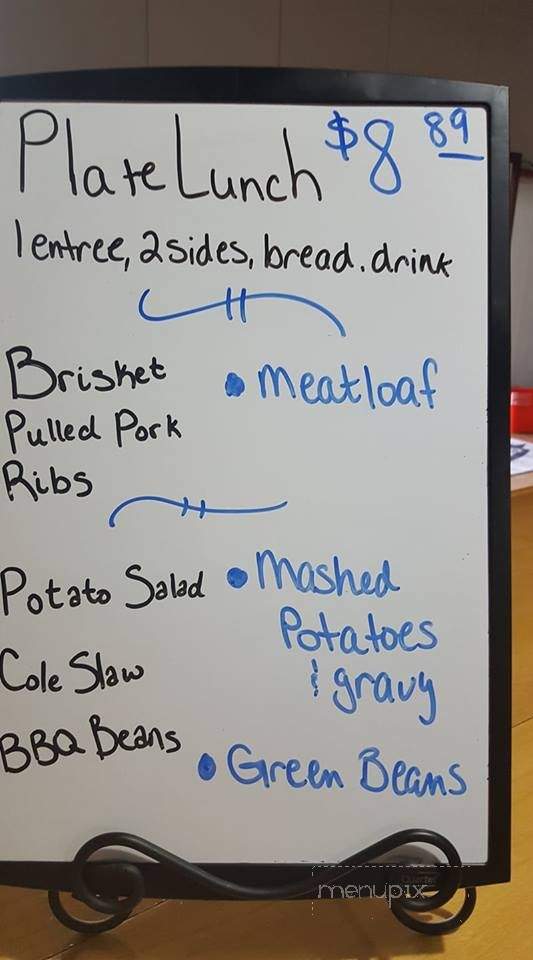 Plate Lunch $8 89
1 entree, 2 sides, bread. drink
Brisket
• Meatloaf
Pulled Pork
Ribs
Potato Salad
• Mashed
Potatoes
& gravy
Cole Slaw
BBQ Beans
• Green Beans
Quartet
menupix